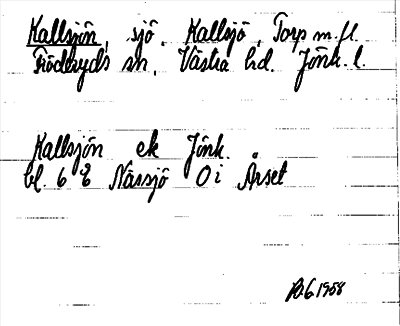 Kallsjön, sjö. Kallsjö, Torp m.fl.
Flödsryds sn, Västra hd. Jönk. l.
Kallsjön ek Jönk.
bl. 6 E Nässjö O i Årset
1958